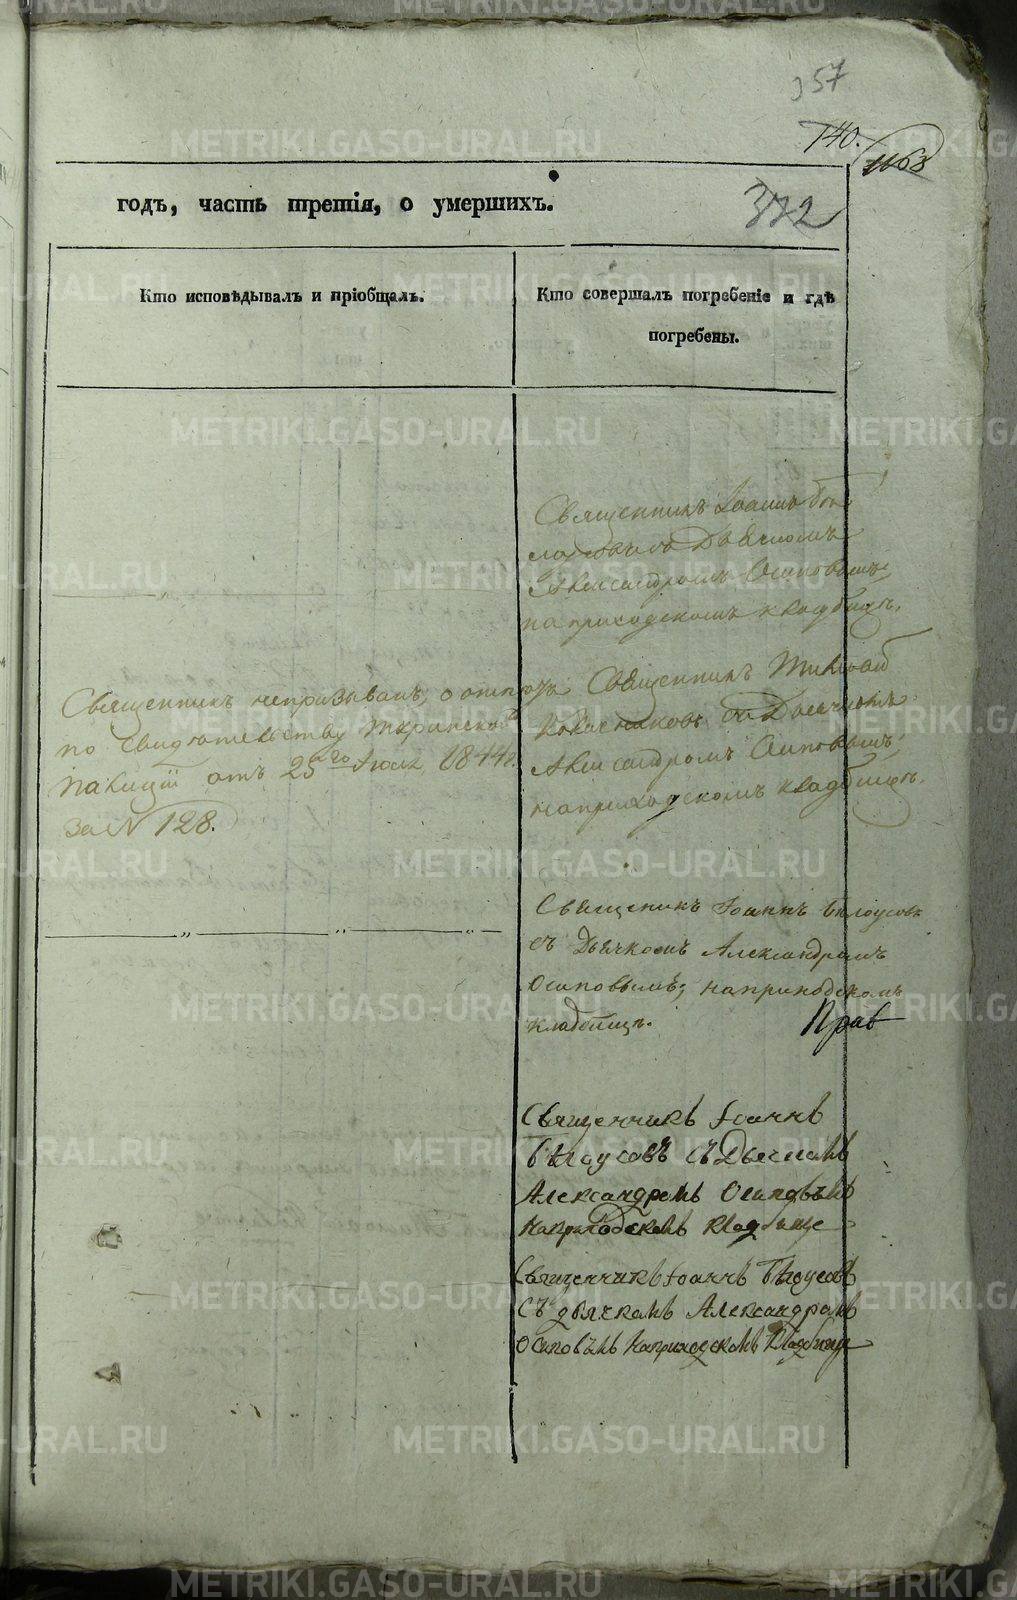 357
140.
1168
372
годъ, часть третія, о умершихъ.
Кто исповѣдывалъ и пріобщалъ.
Кто совершалъ погребеніе и гдѣ
погребены.
Священникъ Іоаннъ Бѣ
лоусовъ съ Дьячкомъ
Александромъ Осиповымъ,
на приходскомъ кладбищѣ.
Священникъ непризыванъ, о отпѣта
по свидѣтельству
Полиціи отъ 25го Іюля 1844г.
За N 128.
Священникъ
съ Дьячкомъ
Александромъ Осиповымъ,
на приходскомъ кладбищѣ.
Священикъ Іоаннъ Бѣлоусовъ
съ Дьячкомъ Александромъ
Осиповымъ; на приходскомъ
кладбищѣ.
Прав
Священникъ Іоаннъ
Бѣлоусовъ съ Дьячкомъ
Александромъ Осиповымъ
на приходскомъ кладбище
Священникъ Іоаннъ Бѣлоусовъ
съ дьячкомъ Александромъ
Осиповымъ на приходскомъ кладбище
METRIKI.GASO-URAL.RU